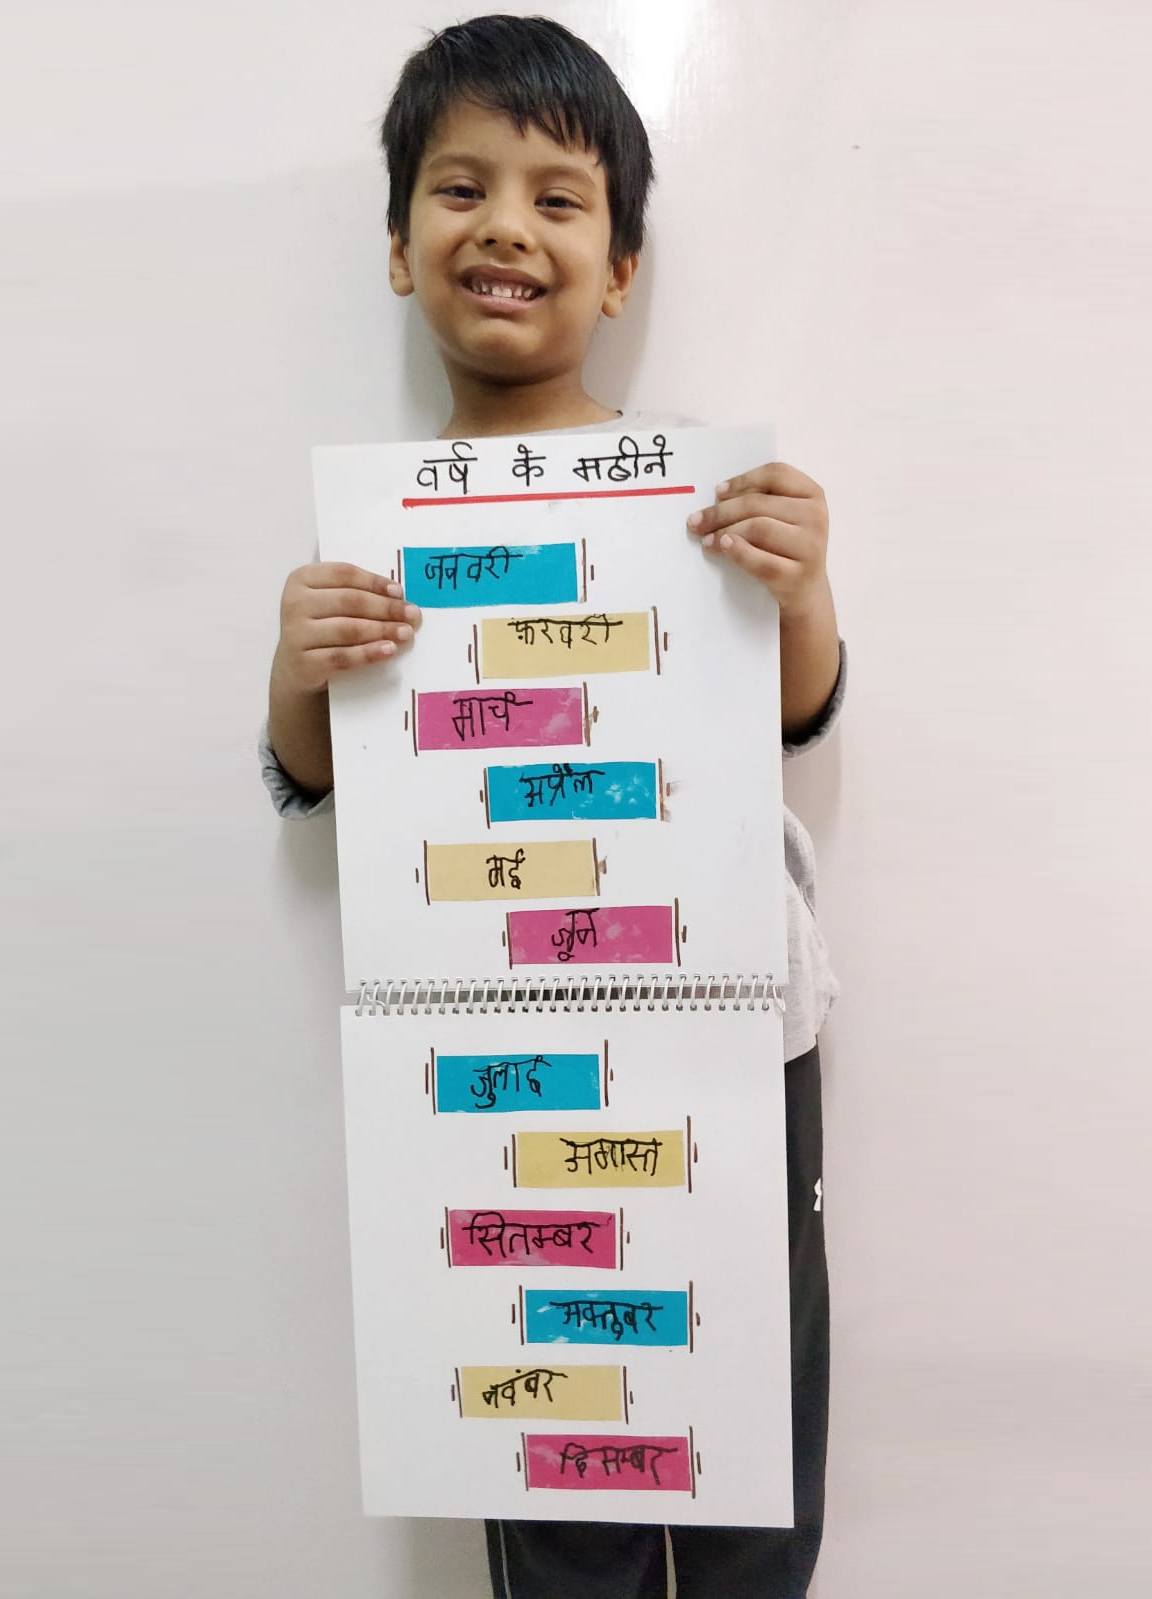 वर्ष के महीने
जनवरी
फ़रवरी
मार्च
अप्रैल
मई
जून
जुलाई
अगास्त
सितम्बर
अक्तुबर
नवंबर
दिसम्बर